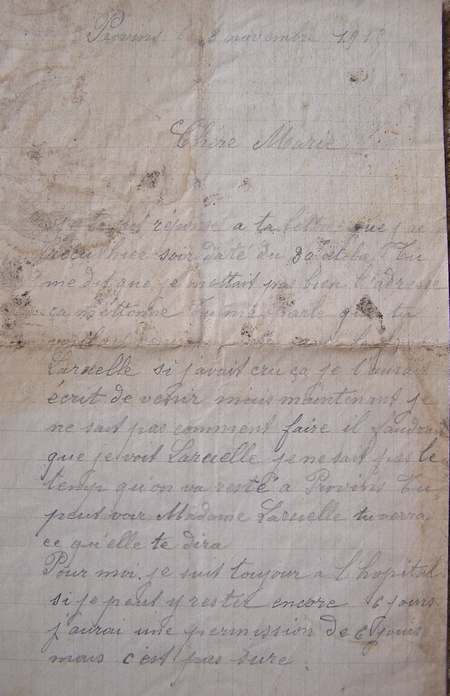 Provins le 2 novembre 191
Chère Marie
réponse a ta lettre que j'ai
recu hier soir daté du 30 et la Tu
me dit que je mettait pas bien l'adresse
ça m'ettonne Tu me parle que tu
Laruelle si j'avait cru ça je t'aurait
écrit de venir mais maintenant je
ne sait pas comment faire il faudra
que je voit Laruelle je ne sait pas le
temp qu'on va resté a Provins tu
peut voir Madame Laruelle tu verra
ce qu'elle te dira
Pour moi je suit toujour a l'hopital
si je peut y rester encore 6 jours
j'aurai une permission de 6 jours
mais c'est pas sure.